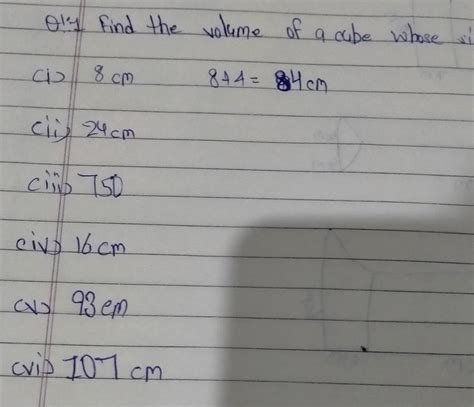 Q1:1 Find the volume of a cube whose si
(i) 8 cm 8+4 = 84 cm
(ii) 24 cm
(iii) 750
(iv) 16 cm
(v) 93 cm
(vi) 107 cm